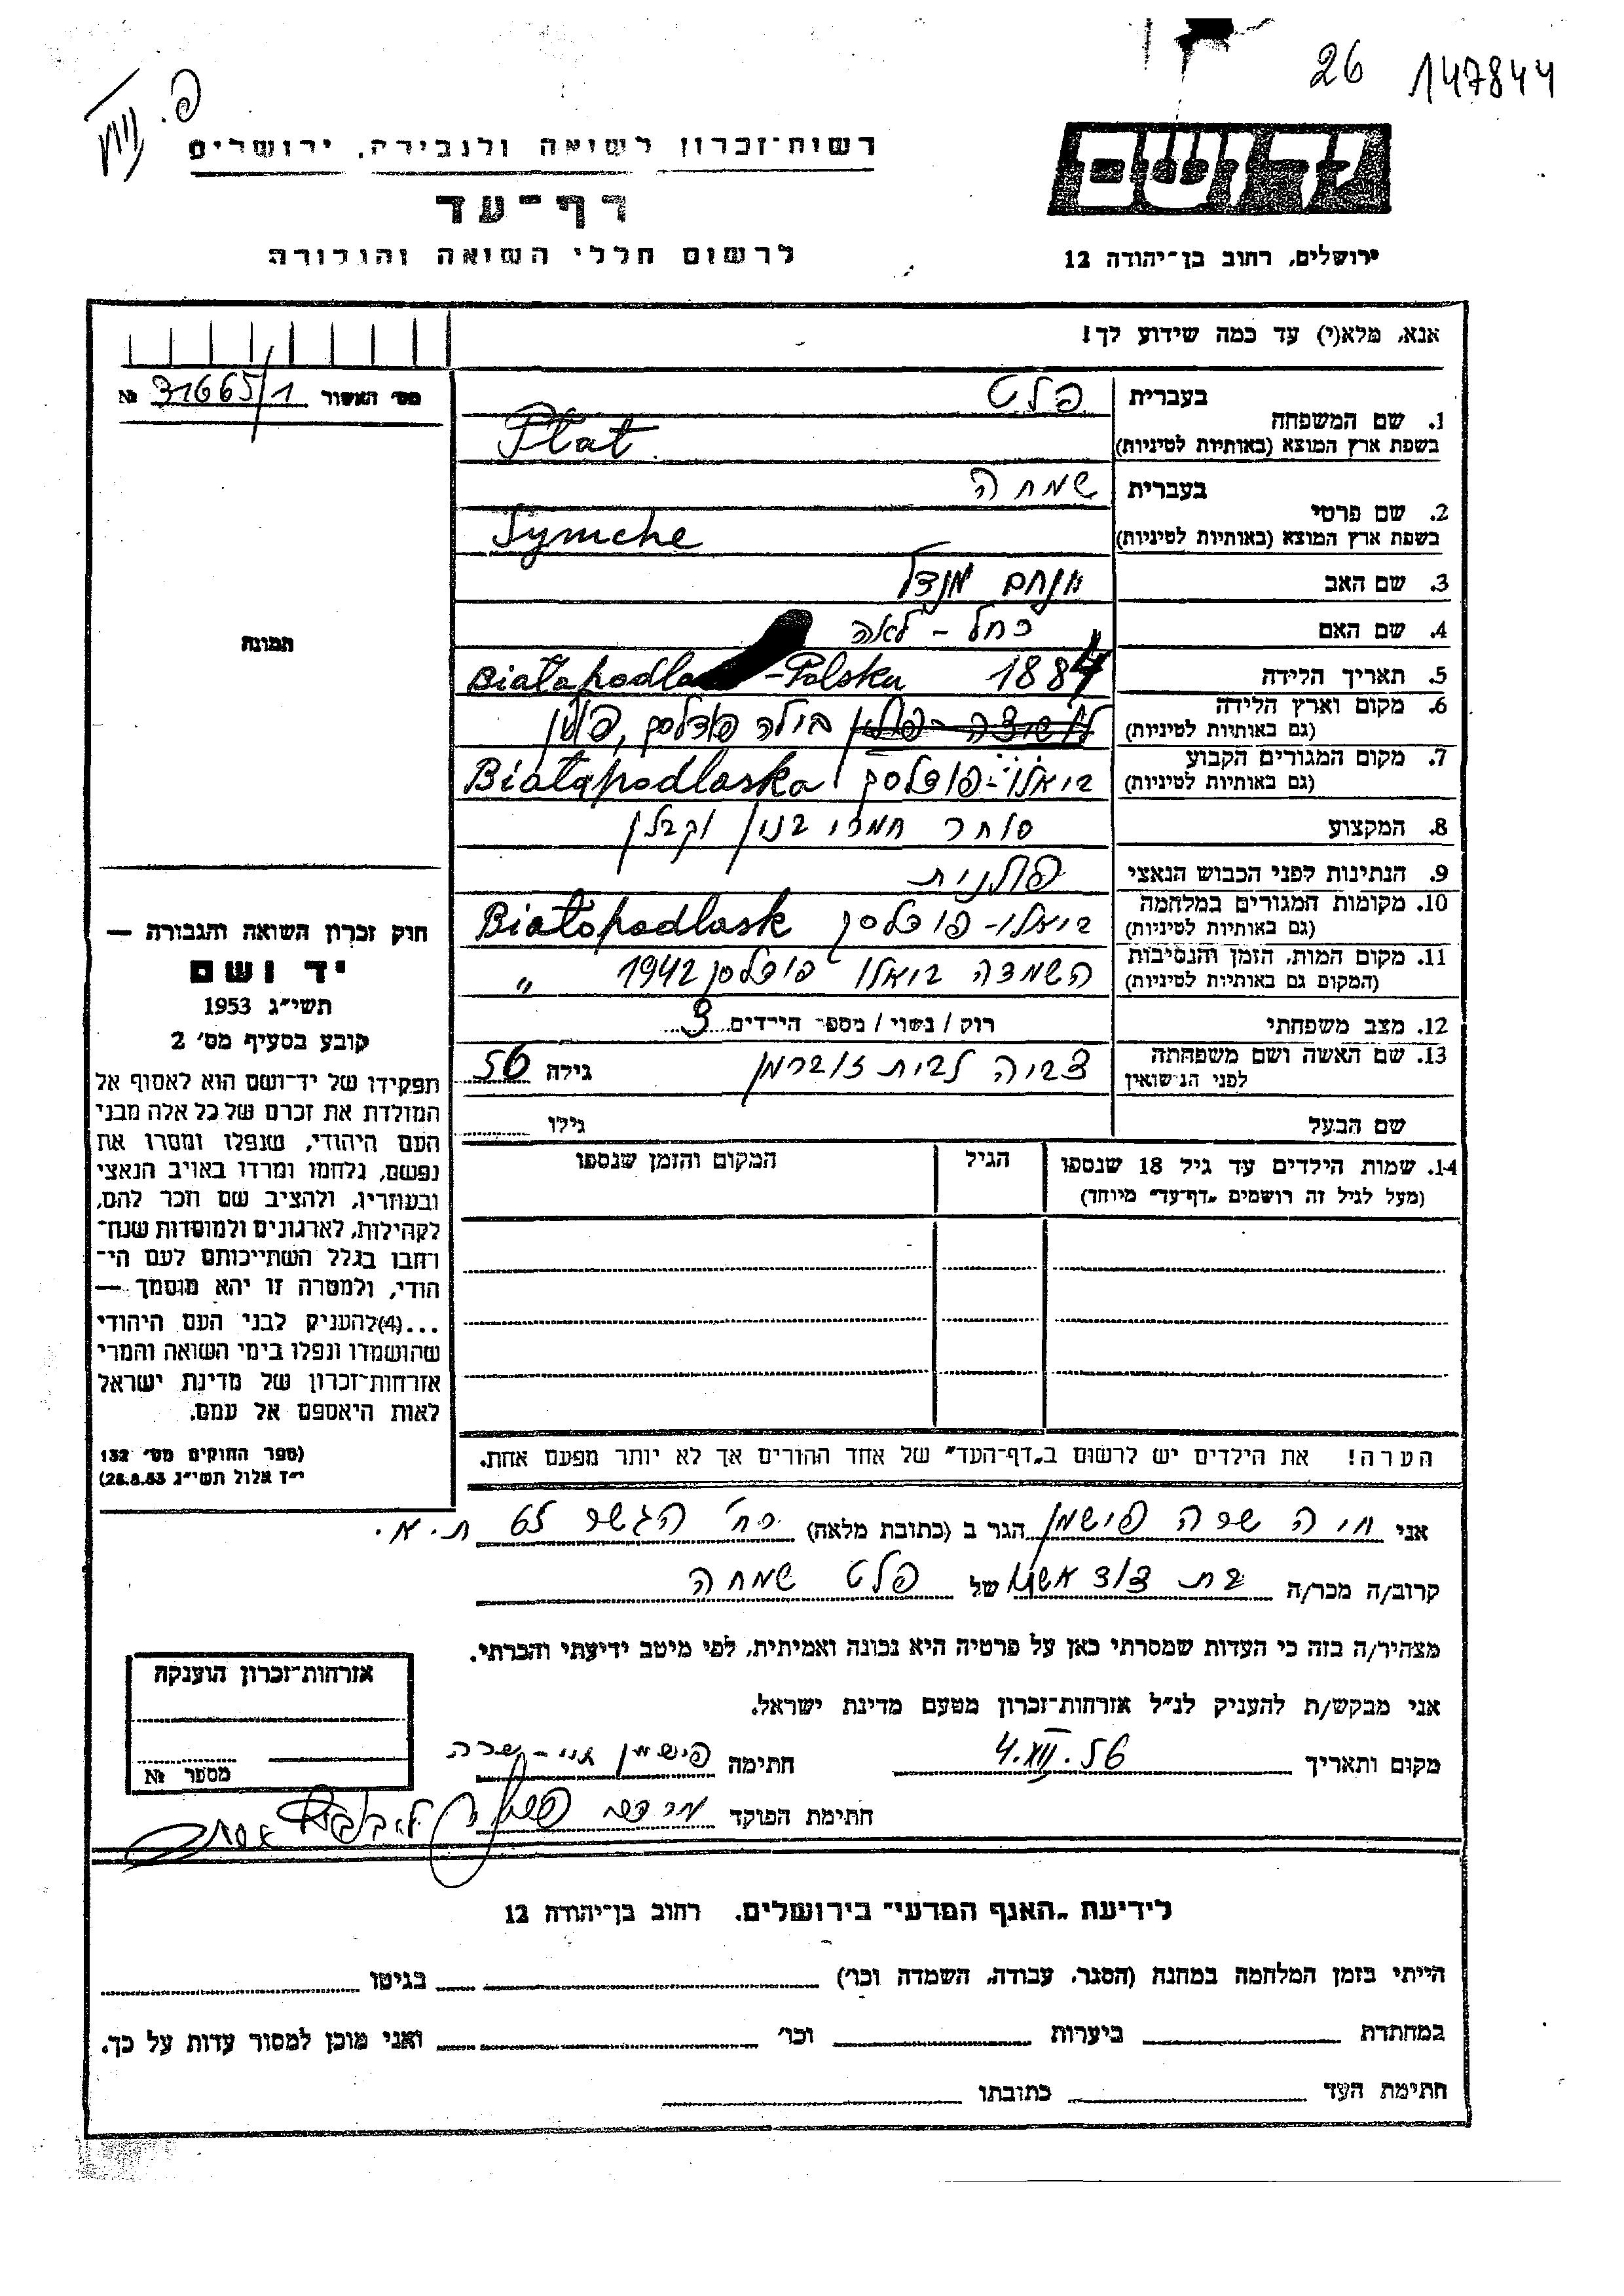 26 147844
רשות־זכרון לשואה ולגבורה, ירושלים
דף־עד
לרשום חללי השואה והגבורה
יד ושם
ירושלים, רחוב בן־יהודה 12
אנא, מלא(י) עד כמה שידוע לך!
מס׳ האשור 31665/1 №
תמונה
1. שם המשפחה
בעברית פלט
בשפת ארץ המוצא (באותיות לטיניות) Plat
2. שם פרטי
בעברית שמחה
בשפת ארץ המוצא (באותיות לטיניות) Symche
3. שם האב מנחם מנדל
4. שם האם רחל - לאה
5. תאריך הלידה 1884
Białapodla -Polska
6. מקום וארץ הלידה
(גם באותיות לטיניות) בילה פודלסק, פולין
7. מקום המגורים הקבוע
(גם באותיות לטיניות) ביאלו-פודלסק Białapodlaska
8. המקצוע סוחר חמרי בנין וקבלן
9. הנתינות לפני הכבוש הנאצי פולנית
10. מקומות המגורים במלחמה
(גם באותיות לטיניות) ביאלו-פודלסק Białopodlask
11. מקום המות, הזמן והנסיבות
(המקום גם באותיות לטיניות) השמדה ביאלו פודלסק 1942 "
12. מצב משפחתי רוק / נשוי / מספר הילדים 3
13. שם האשה ושם משפחתה
לפני הנשואין צביה לבית זוברמן גילה 56
שם הבעל גילו
14. שמות הילדים עד גיל 18 שנספו
(מעל לגיל זה רושמים „דף־עד״ מיוחד)
הגיל
המקום והזמן שנספו
חוק זכרון השואה והגבורה —
יד ושם
תשי״ג 1953
קובע בסעיף מס׳ 2
תפקידו של יד־ושם הוא לאסוף אל
המולדת את זכרם של כל אלה מבני
העם היהודי, שנפלו ומסרו את
נפשם, נלחמו ומרדו באויב הנאצי
ובעוזריו, ולהציב שם וזכר להם,
לקהילות, לארגונים ולמוסדות שנח־
רבו בגלל השתייכותם לעם הי־
הודי, ולמטרה זו יהא מוסמך —
...(4)להעניק לבני העם היהודי
שהושמדו ונפלו בימי השואה והמרי
אזרחות־זכרון של מדינת ישראל
לאות היאספם אל עמם.
(ספר החוקים מס׳ 132
י״ד אלול תשי״ג 28.8.53)
הערה! את הילדים יש לרשום ב„דף־העד״ של אחד ההורים אך לא יותר מפעם אחת.
אני חיה שרה פישמן הגר ב (כתובת מלאה) רח׳ הגשר ת.א.
קרוב/ה מכר/ה בת של פלט שמחה
מצהיר/ה בזה כי העדות שמסרתי כאן על פרטיה היא נכונה ואמיתית, לפי מיטב ידיעתי והכרתי.
אני מבקש/ת להעניק לנ״ל אזרחות־זכרון מטעם מדינת ישראל.
מקום ותאריך 4.XII.56 חתימה פישמן חי-שרה
חתימת הפוקד
אזרחות־זכרון הוענקה
מספר №
לידיעת „האגף המדעי״ בירושלים. רחוב בן־יהודה 12
הייתי בזמן המלחמה במחנה (הסגר, עבודה, השמדה וכו׳) בגיטו
במחתרת ביערות וכו׳ ואני מוכן למסור עדות על כך.
חתימת העד כתובתו